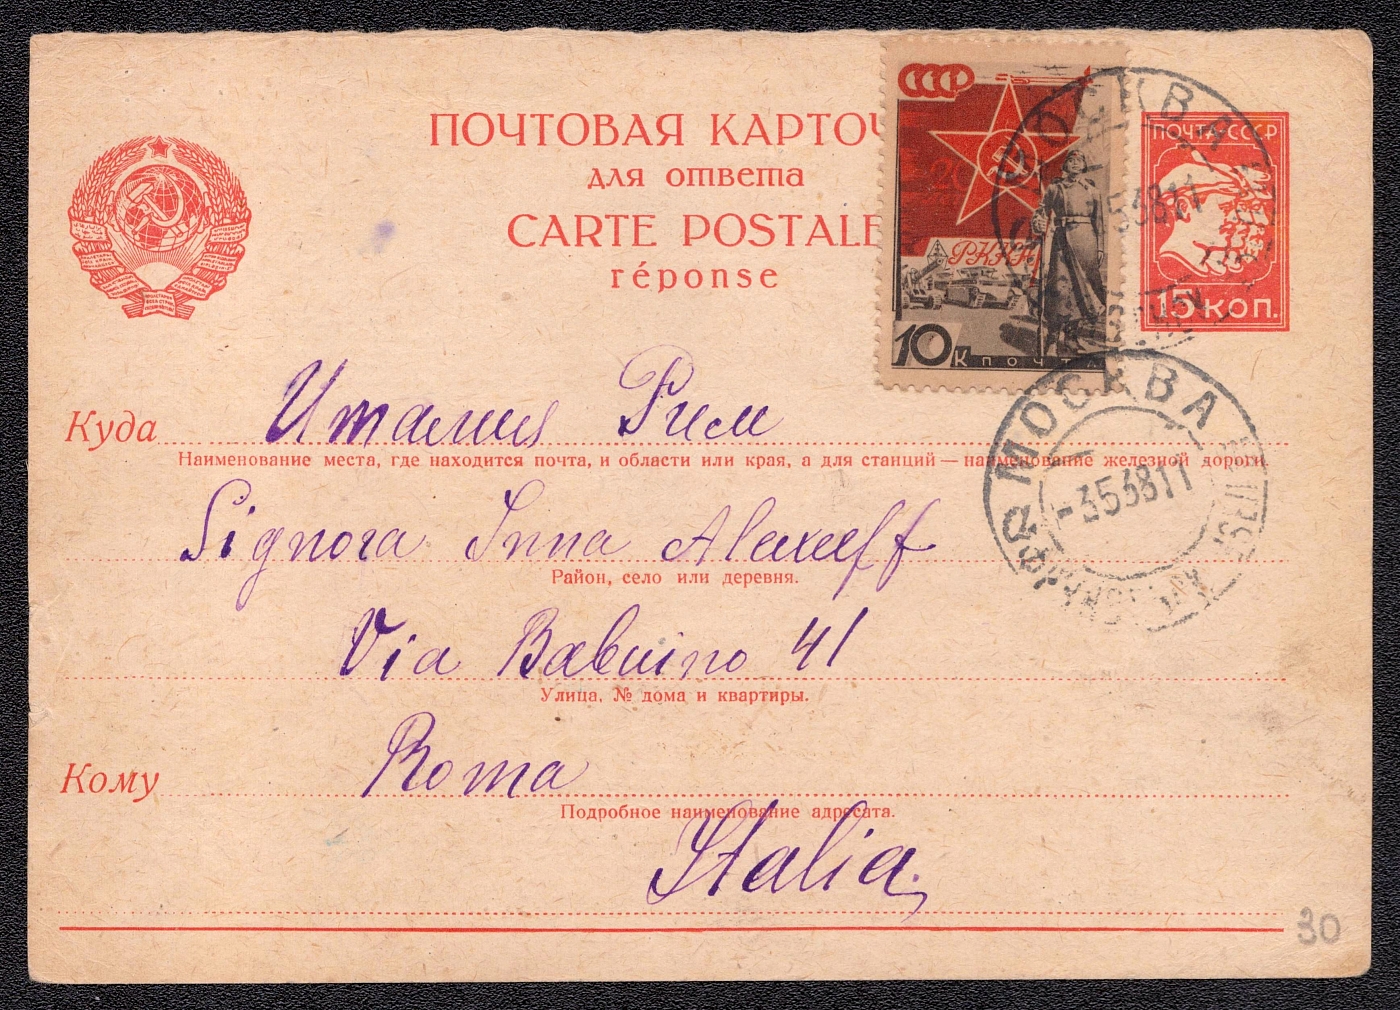 ПОЧТОВАЯ КАРТОЧ
для ответа
CARTE POSTALE
réponse
СССР
20
РККА
10 К ПОЧТА
ПОЧТА СССР
15 КОП.
МОСКВА
353811
МОСКВА
-353811
Куда Италия Рим
Наименование места, где находится почта, и области или края, а для станций — наименование железной дороги.
Signora Inna Alexeeff
Район, село или деревня.
Via Babuino 41
Улица, № дома и квартиры.
Кому Roma
Подробное наименование адресата.
Italia.
30